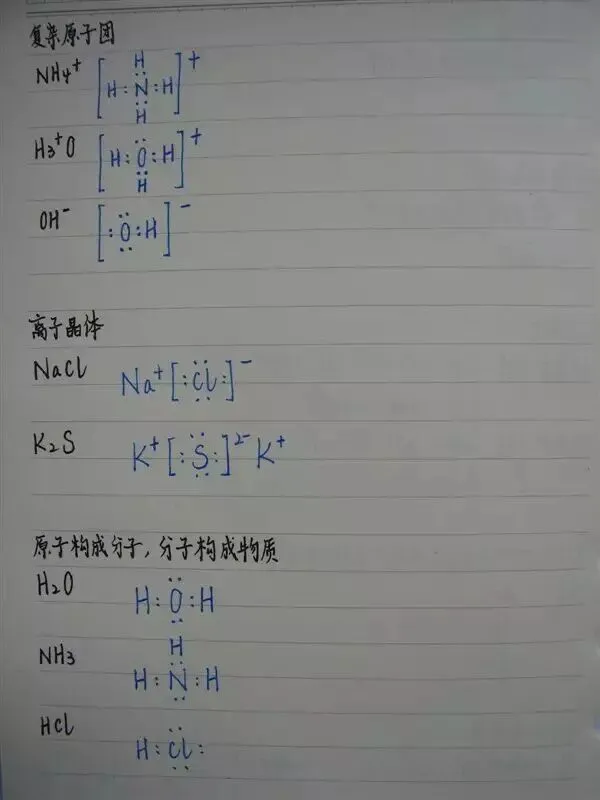 复杂原子团
NH4+ [H:N:H]+
H
H
H3+O [H:O:H]+
H
OH- [:O:H]-
离子晶体
NaCl Na+[:Cl:]-
K2S K+[:S:]2-K+
原子构成分子,分子构成物质
H2O H:O:H
H
NH3 H:N:H
HCl H:Cl: